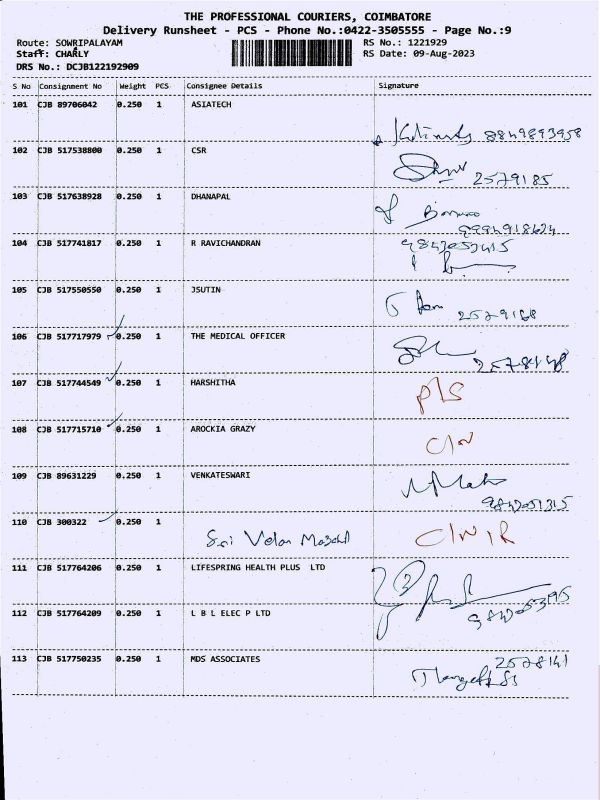 THE PROFESSIONAL COURIERS, COIMBATORE
Delivery Runsheet - PCS - Phone No.:0422-3505555 - Page No.:9
Route: SOWRIPALAYAM
Staff: CHARLY
DRS No.: DCJB122192909
RS No.: 1221929
RS Date: 09-Aug-2023
S No Consignment No Weight PCS Consignee Details Signature
101 CJB 89706042 0.250 1 ASIATECH
8849893958
102 CJB 517538800 0.250 1 CSR
2579185
103 CJB 517638928 0.250 1 DHANAPAL
9994918624
104 CJB 517741817 0.250 1 R RAVICHANDRAN
9843053415
105 CJB 517550550 0.250 1 JSUTIN
2529168
106 CJB 517717979 0.250 1 THE MEDICAL OFFICER
107 CJB 517744549 0.250 1 HARSHITHA
P/S
108 CJB 517715710 0.250 1 AROCKIA GRAZY
C/N
109 CJB 89631229 0.250 1 VENKATESWARI
110 CJB 300322 0.250 1
Sri Velan C/N/R
111 CJB 517764206 0.250 1 LIFESPRING HEALTH PLUS LTD
112 CJB 517764209 0.250 1 L B L ELEC P LTD
113 CJB 517750235 0.250 1 MDS ASSOCIATES
2578141